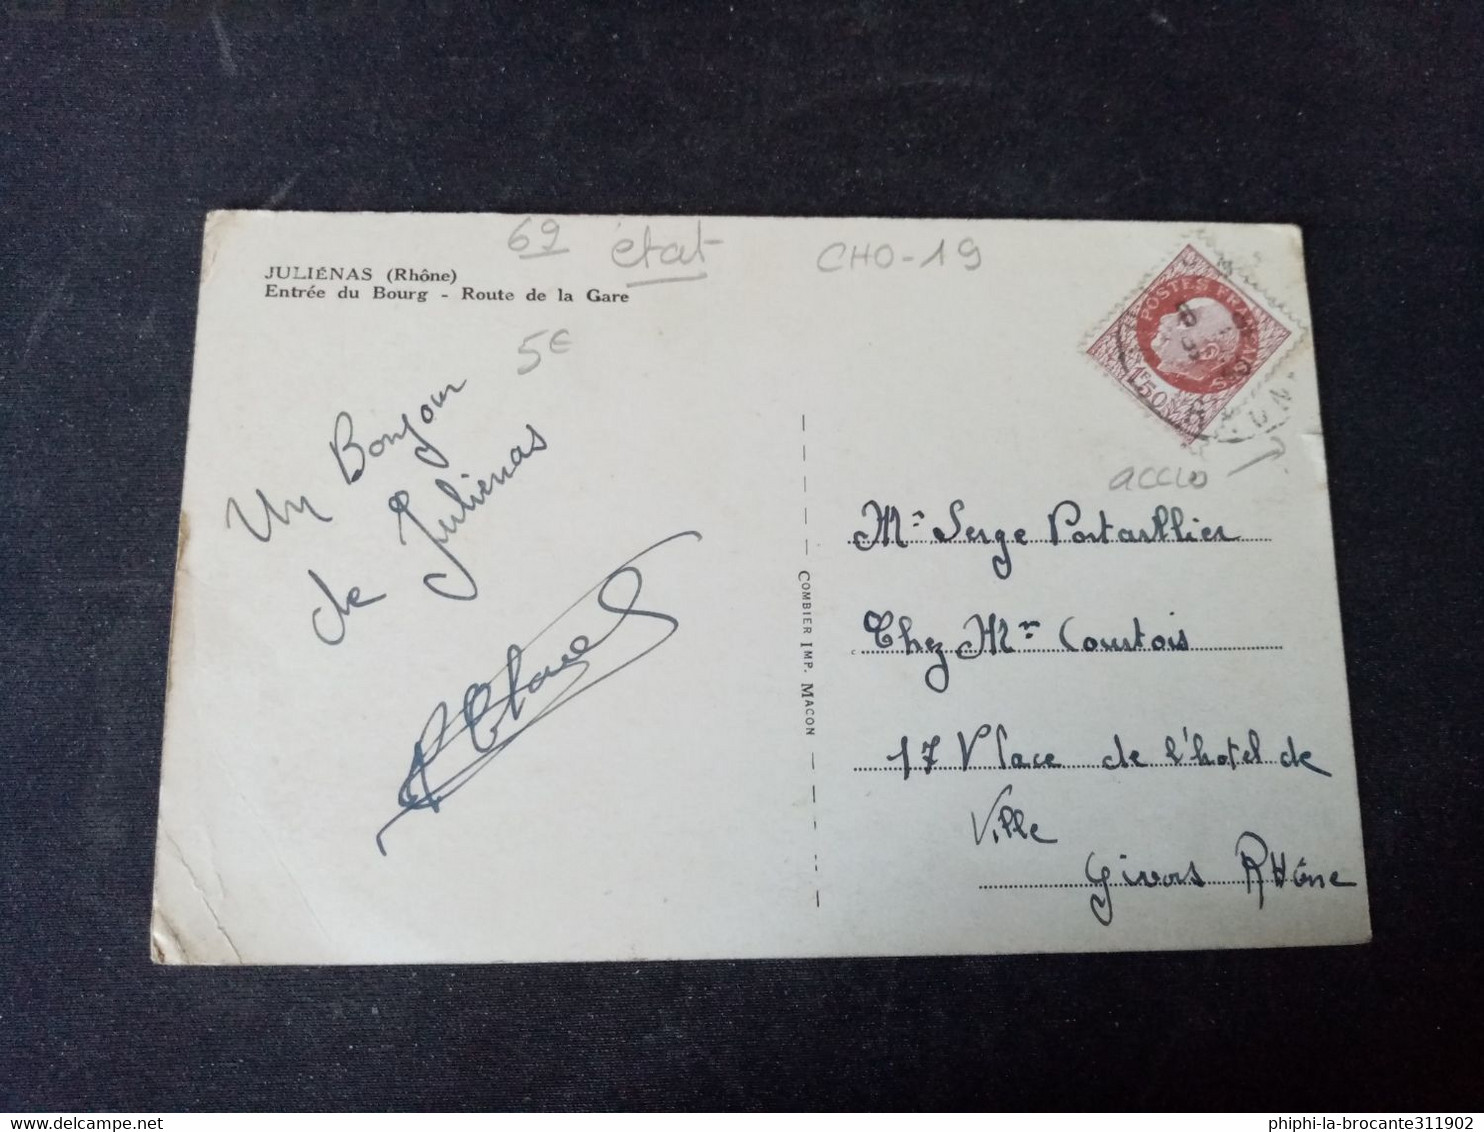 69 état CHO-19
JULIÉNAS (Rhône)
Entrée du Bourg - Route de la Gare
5€
Un Bonjour
de Juliénas
POSTES FRANÇAISES
1F50
accro
Mr Serge Portaillier
Chez Mme Courtois
17 Place de l'hotel de
Ville
Givors RHône
COMBIER IMP. MACON
phiphi-la-brocante311902